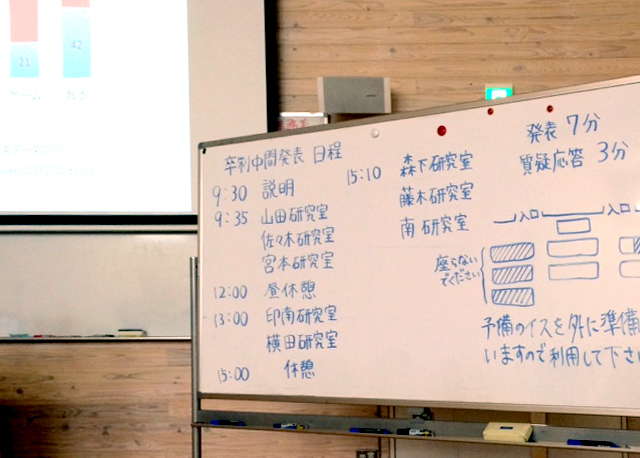 21
42
ゲーム
卒制中間発表 日程
9:30 説明
9:35 山田研究室
佐々木研究室
宮本研究室
12:00 昼休憩
13:00 印南研究室
横田研究室
15:00 休憩
15:10 森下研究室
藤木研究室
南研究室
発表 7分
質疑応答 3分
入口 入口
座らない
でください
予備のイスを外に準備
いますので利用して下さい